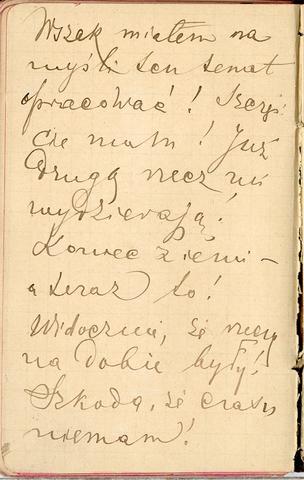 Wszak miałem na
myśli ten temat
opracować! Szczę-
ście mam! Już
drugą rzecz mi
wydzierają!
Koniec ziemi –
a teraz to!
Widocznie, że rzeczy
na dobie były!
Szkoda, że czasu
niemam!